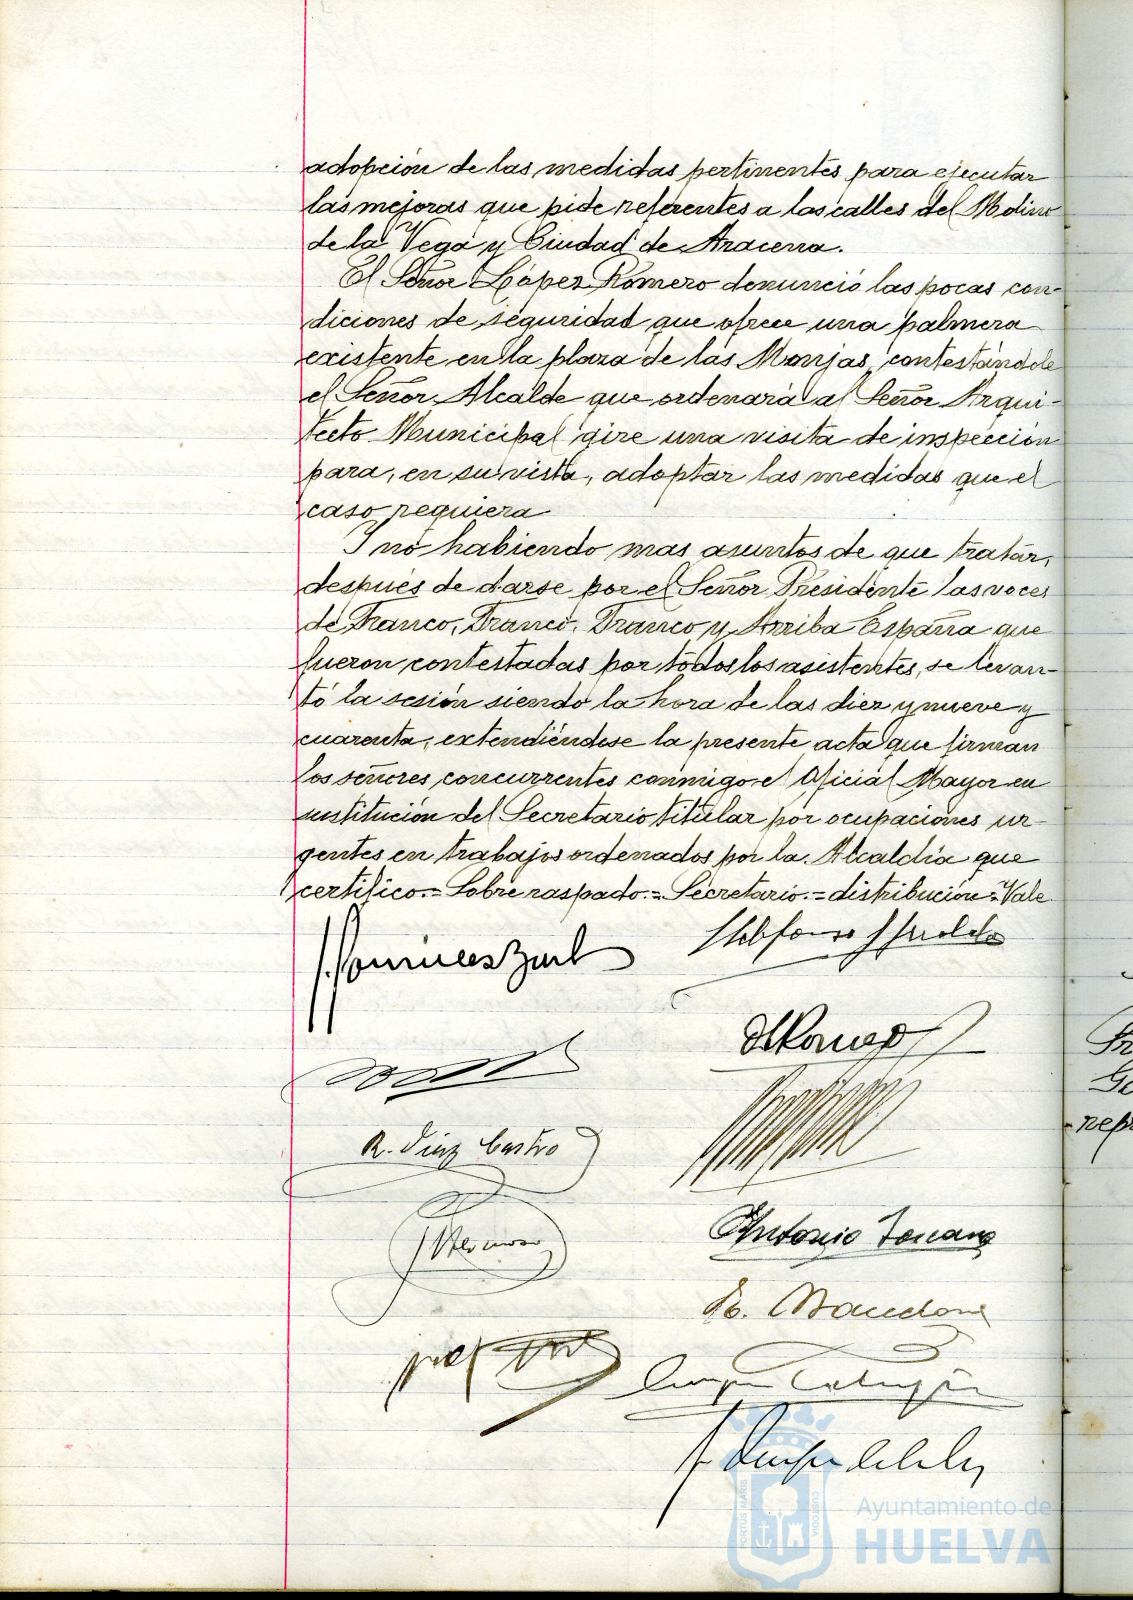 adopción de las medidas pertinentes para ejecutar
las mejoras que pide referentes a las calles del Molino
de la Vega y Ciudad de Aracena.
El Señor López Romero denunció las pocas con-
diciones de seguridad que ofrece una palmera
existente en la plaza de las Monjas, contestándole
el Señor Alcalde que ordenará al Señor Arqui-
tecto Municipal gire una visita de inspección
para, en su vista, adoptar las medidas que el
caso requiera
Y no habiendo mas asuntos de que tratar,
después de darse por el Señor Presidente las voces
de Franco, Franco, Franco y Arriba España que
fueron contestadas por todos los asistentes, se levan-
tó la sesión siendo la hora de las diez y nueve y
cuarenta, extendiéndose la presente acta que firman
los señores concurrentes conmigo el Oficial Mayor en
sustitución del Secretario titular por ocupaciones ur-
gentes en trabajos ordenados por la Alcaldía que
certifico.= Sobre raspado.= Secretario.= distribución= Vale
R. Díaz Castro
Antonio Toscano
Ayuntamiento de
HUELVA
PORTUS MARIS
CUSTODIA